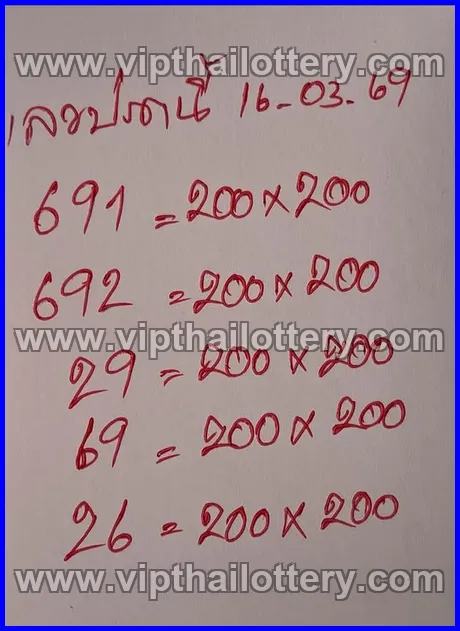 www.vipthailottery.com
เลขปตานี 16-03-69
691 = 200 x 200
692 = 200 x 200
www.vipthailottery.com
29 = 200 x 200
69 = 200 x 200
26 = 200 x 200
www.vipthailottery.com